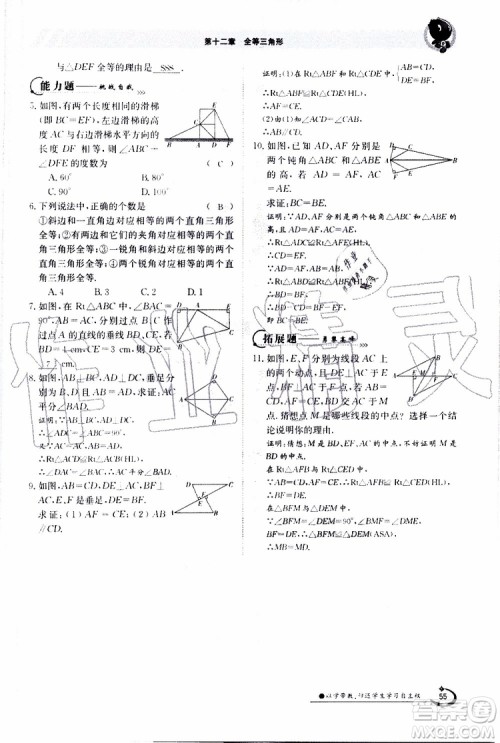 第十二章 全等三角形
与△DEF 全等的理由是 SSS .
能力题——挑战自我
5. 如图，有两个长度相同的滑梯
(即 BC=EF)，左边滑梯的高
度 AC 与右边滑梯水平方向的
长度 DF 相等，则∠ABC+
∠DFE 的度数为 ( C )
A. 60° B. 80°
C. 90° D. 100°
6. 下列说法中，正确的个数为 ( B )
①斜边和一直角边对应相等的两个直角三角形
全等；②两个锐角对应相等的两个直角三角形
全等；③一锐角和斜边对应相等的两个直角三
角形全等.
A. 3 B. 2 C. 1 D. 0
7. 如图，在 Rt△ABC 中，∠BAC=
90°，AB=AC，分别过点 B，C 作
过点 A 的垂线 BC，CE，垂足为 D，E，若
BD=4 cm，CE=3 cm，则 DE=
7 cm.
8. 如图，AB⊥BC，AD⊥DC，AB=AD，
求证：∠DAC=∠BAC.
证明：∵AB⊥BC，AD⊥DC，
∴∠ADC=∠ABC=90°.
∴Rt△ADC≌Rt△ABC(HL).
∴∠DAC=∠BAC.
9. 如图，AB=CD，DE⊥AC，BF⊥
AC，E，F 是垂足，DE=BF.
求证：(1)AF=CE；(2)AB
∥CD.
AB=CD，
证明：(1)在 Rt△ABF 和 Rt△CDE 中，
∴Rt△ABF≌Rt△CDE(HL).
∴AF=CE.
(2)由(1)知∠ACD=∠CAB，
∴AB∥CD.
10. 如图，AD，AF 分别是
两个钝角△ABC 和
△ABE 的高，如果 AD=AF，AC=AE.
求证：BC=BE.
证明：∵AD，AF 分别是两个钝角△ABC 和△ABE
的高，且 AD=AF，AC=AE，
∴Rt△ADC≌Rt△AFE(HL).
∴CD=EF.
∵AD=AF，AB=AB，
∴Rt△ABD≌Rt△ABF(HL).
∴BD=BF.
∴BD−CD=BF−EF.
即 BC=BE.
拓展题——勇攀高峰
11. 如图，E，F 分别为线段 AC 上
的两个动点，且 DE⊥AC 于
点 E，BF⊥AC 于点 F，若 AB
=CD，AF=CE，BD 交 AC 于点
M. 猜想点 M 是哪些线段的中点，选择一个结
论说明你的猜想.
证明：猜想：MB=MD，ME=MF.
∵AB=CD，AF=CE，
∴Rt△AFB≌Rt△CED(HL).
∴BF=DE.
∵在△BFM 与△DEM 中，
∠BFM=∠DEM=90°，∠BMF=∠DME，
BF=DE，∴△BFM≌△DEM(ASA).
∴MB=MD，ME=MF.
以学带教，归还学生学习自主权
55